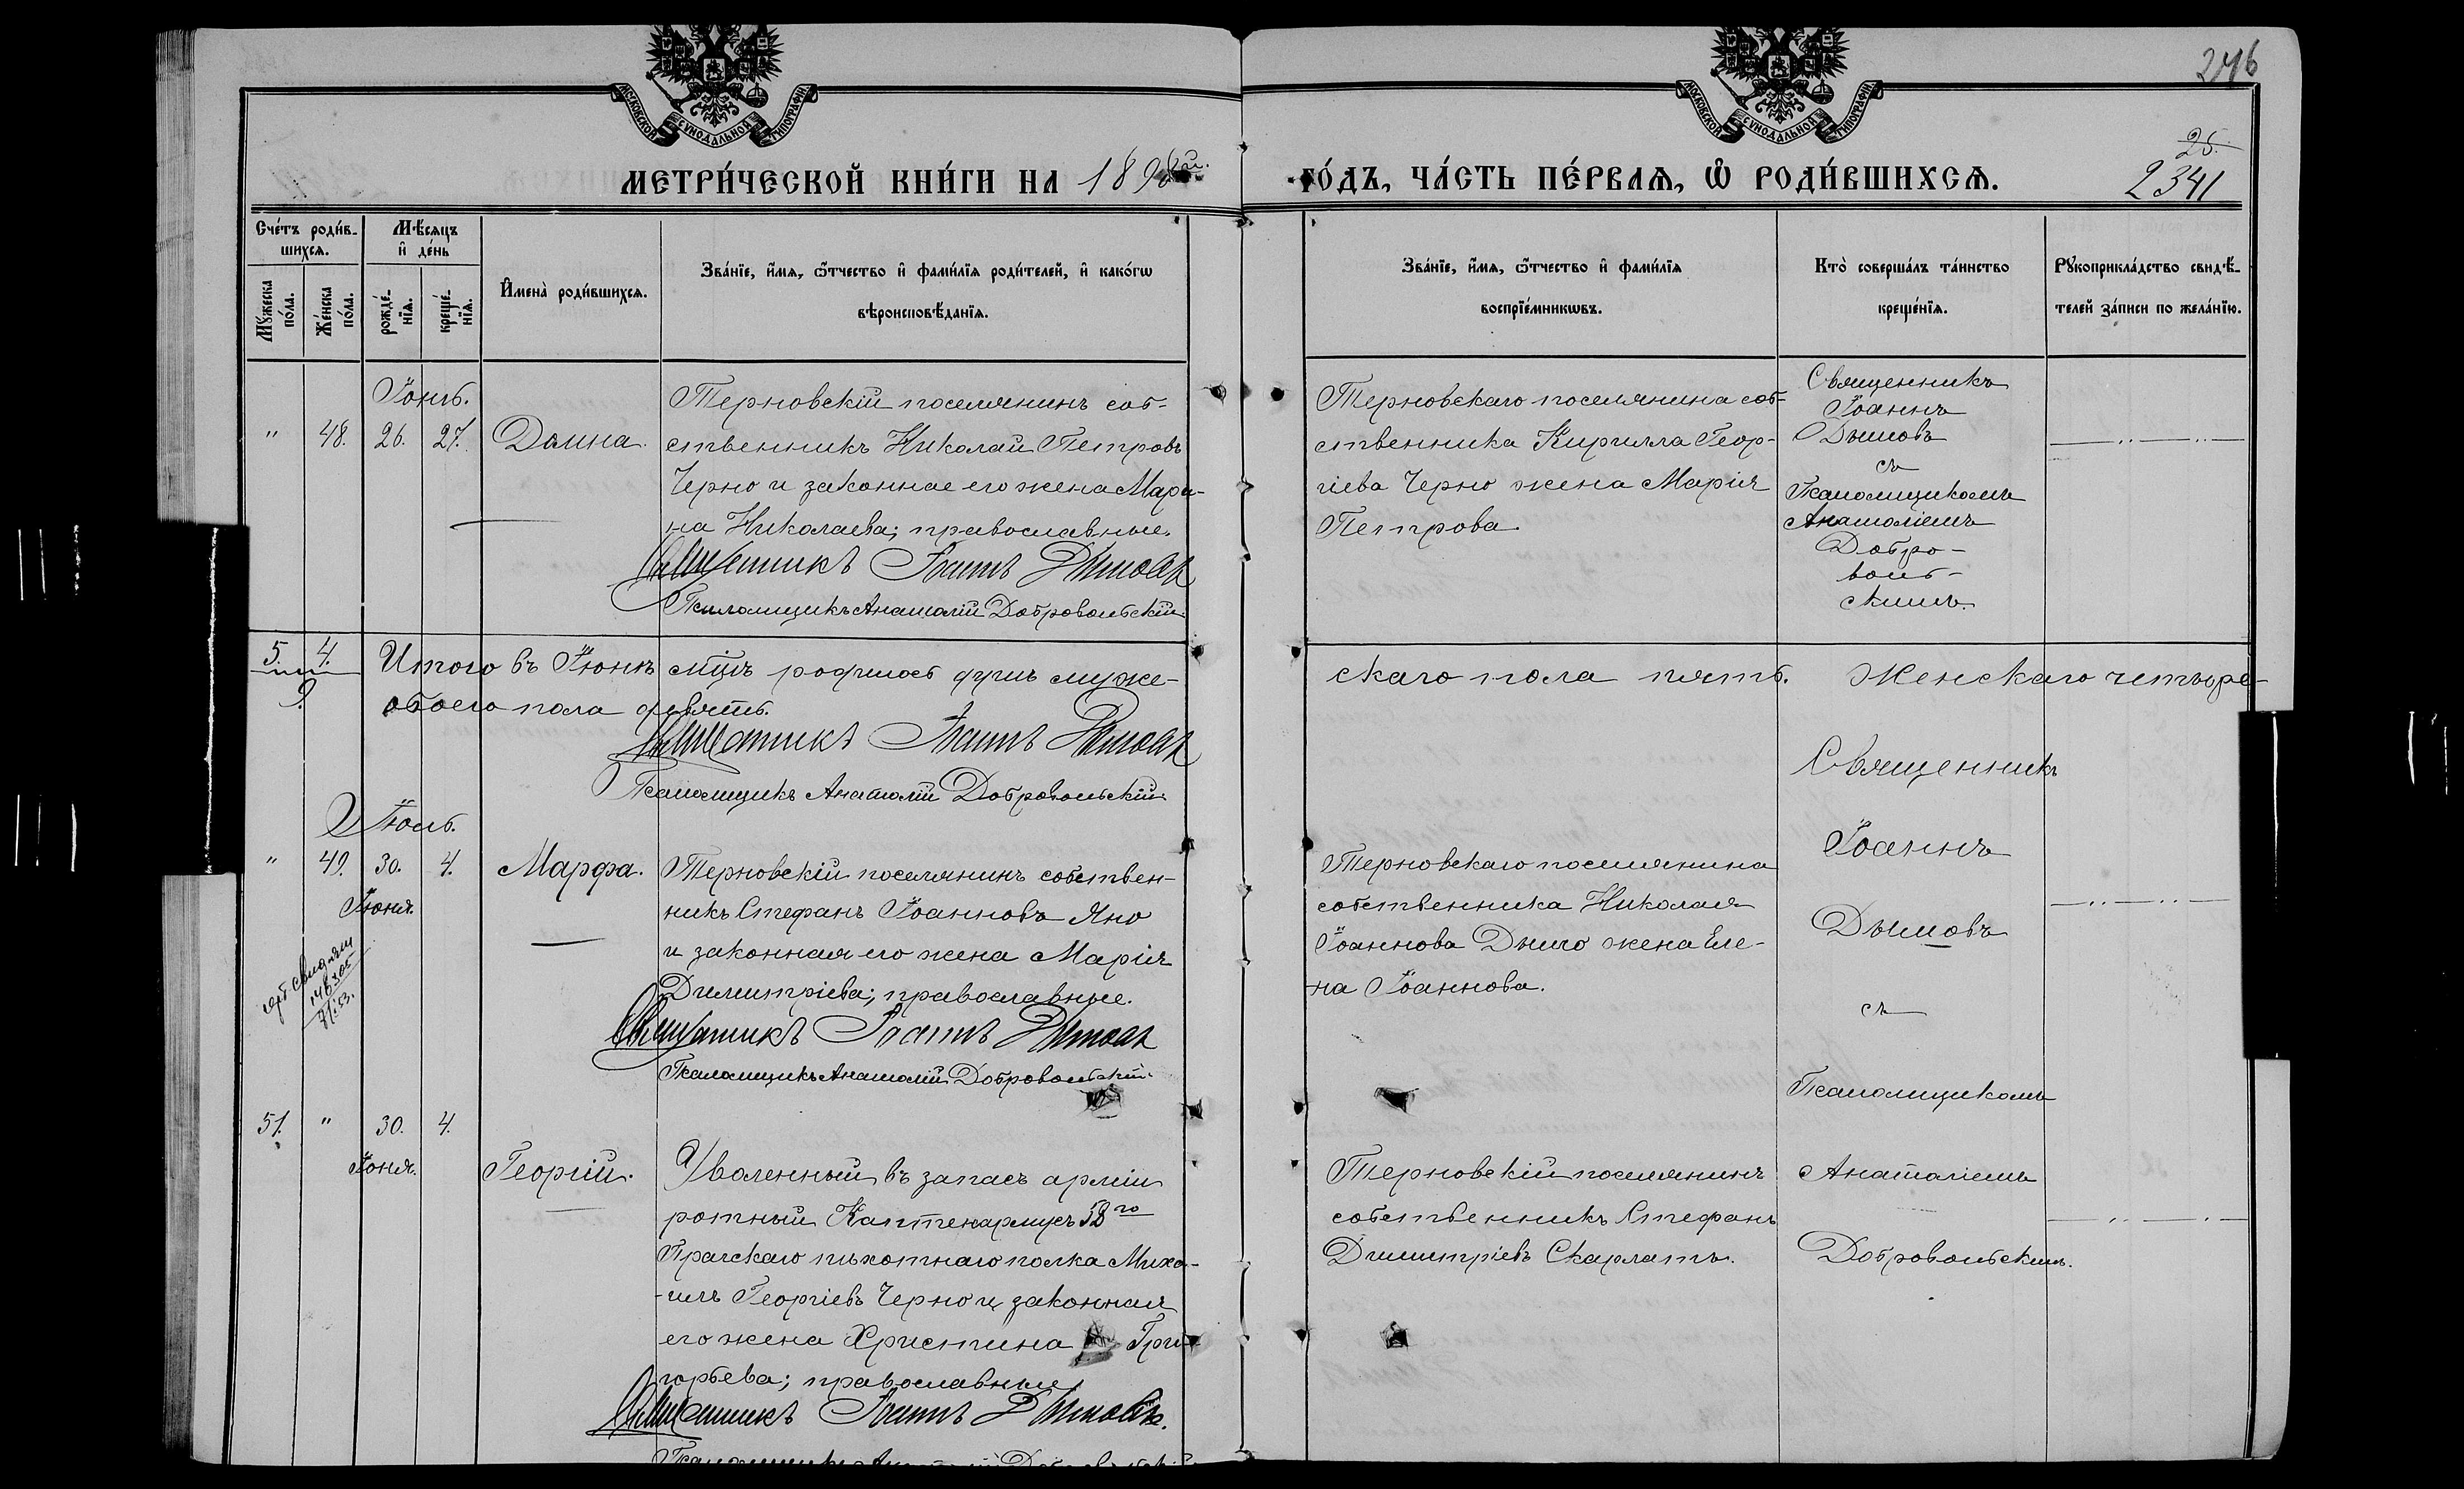 246
МОСКОВСКОЙ СѴНОДАЛЬНОЙ ТИПОГРАФІИ
МОСКОВСКОЙ СѴНОДАЛЬНОЙ ТИПОГРАФІИ
25.
2341
МЕТРИ́ЧЕСКОЙ КНИ́ГИ НА 189
ГО́ДЪ, ЧА́СТЬ ПЕ́РВАѦ, Ѽ РОДИ́ВШИХСѦ.
Сче́тъ роди́в-
шихсѧ.
Мꙋ́жеска по́ла.
Же́нска по́ла.
Мѣ́сѧцъ
и҆ де́нь
рожде́-
нїѧ.
креще́-
нїѧ.
И҆мена̀ роди́вшихсѧ.
Зва́нїе, и҆́мѧ, ѻ҆́тчество и҆ фами́лїѧ роди́телей, и҆ како́гѡ
вѣроисповѣ́данїѧ.
Зва́нїе, и҆́мѧ, ѻ҆́тчество и҆ фами́лїѧ
воспрїе́мникѡвъ.
Кто̀ соверша́лъ та́инство
креще́нїѧ.
Рꙋкоприкла́дство свидѣ́-
телей за́писи по жела́нїю.
Іюнь.
" 48. 26. 27. Домна.
Терновскій поселянинъ соб-
ственникъ Николай Петровъ
Черно и законная его жена Мари-
на Николаева; православные.
Священникъ Іоаннъ Дымовъ
Псаломщикъ Анатолій Добровольскій.
Терновскаго поселянина соб-
ственника Кирилла Геор-
гіева Черно жена Марія
Петрова
Священникъ
Іоаннъ
Дымовъ
съ
Псаломщикомъ
Анатоліемъ
Добро-
воль-
скимъ.
5. 4.
9.
Итого въ Іюнѣ мѣцѣ родилось душъ муже-
скаго пола пять. Женскаго четыре
обоего пола девять.
Священникъ Іоаннъ Дымовъ
Псаломщикъ Анатолій Добровольскій
Іюль.
" 49. 30. 4. Марфа.
Іюня.
Терновскій поселянинъ собствен-
никъ Стефанъ Іоанновъ Яно
и законная его жена Марія
Димитріева; православные.
Священникъ Іоаннъ Дымовъ
Псаломщикъ Анатолій Добровольскій.
Терновскаго поселянина
собственника Николая
Іоаннова Дышо жена Еле-
на Іоаннова.
Священникъ
Іоаннъ
Дымовъ
съ
Псаломщикомъ
Анатоліемъ
Добровольскимъ.
51. " 30. 4.
Іюня. Георгій.
Уволенный въ запасъ арміи
ротный Каптенармусъ 58го
Прагскаго пѣхотнаго полка Миха-
-илъ Георгіевъ Черно и законная
его жена Христина Гри-
горьева; православные
Священникъ Іоаннъ Дымовъ.
Терновскій поселянинъ
собственникъ Стефанъ
Димитріевъ Скарлатъ.